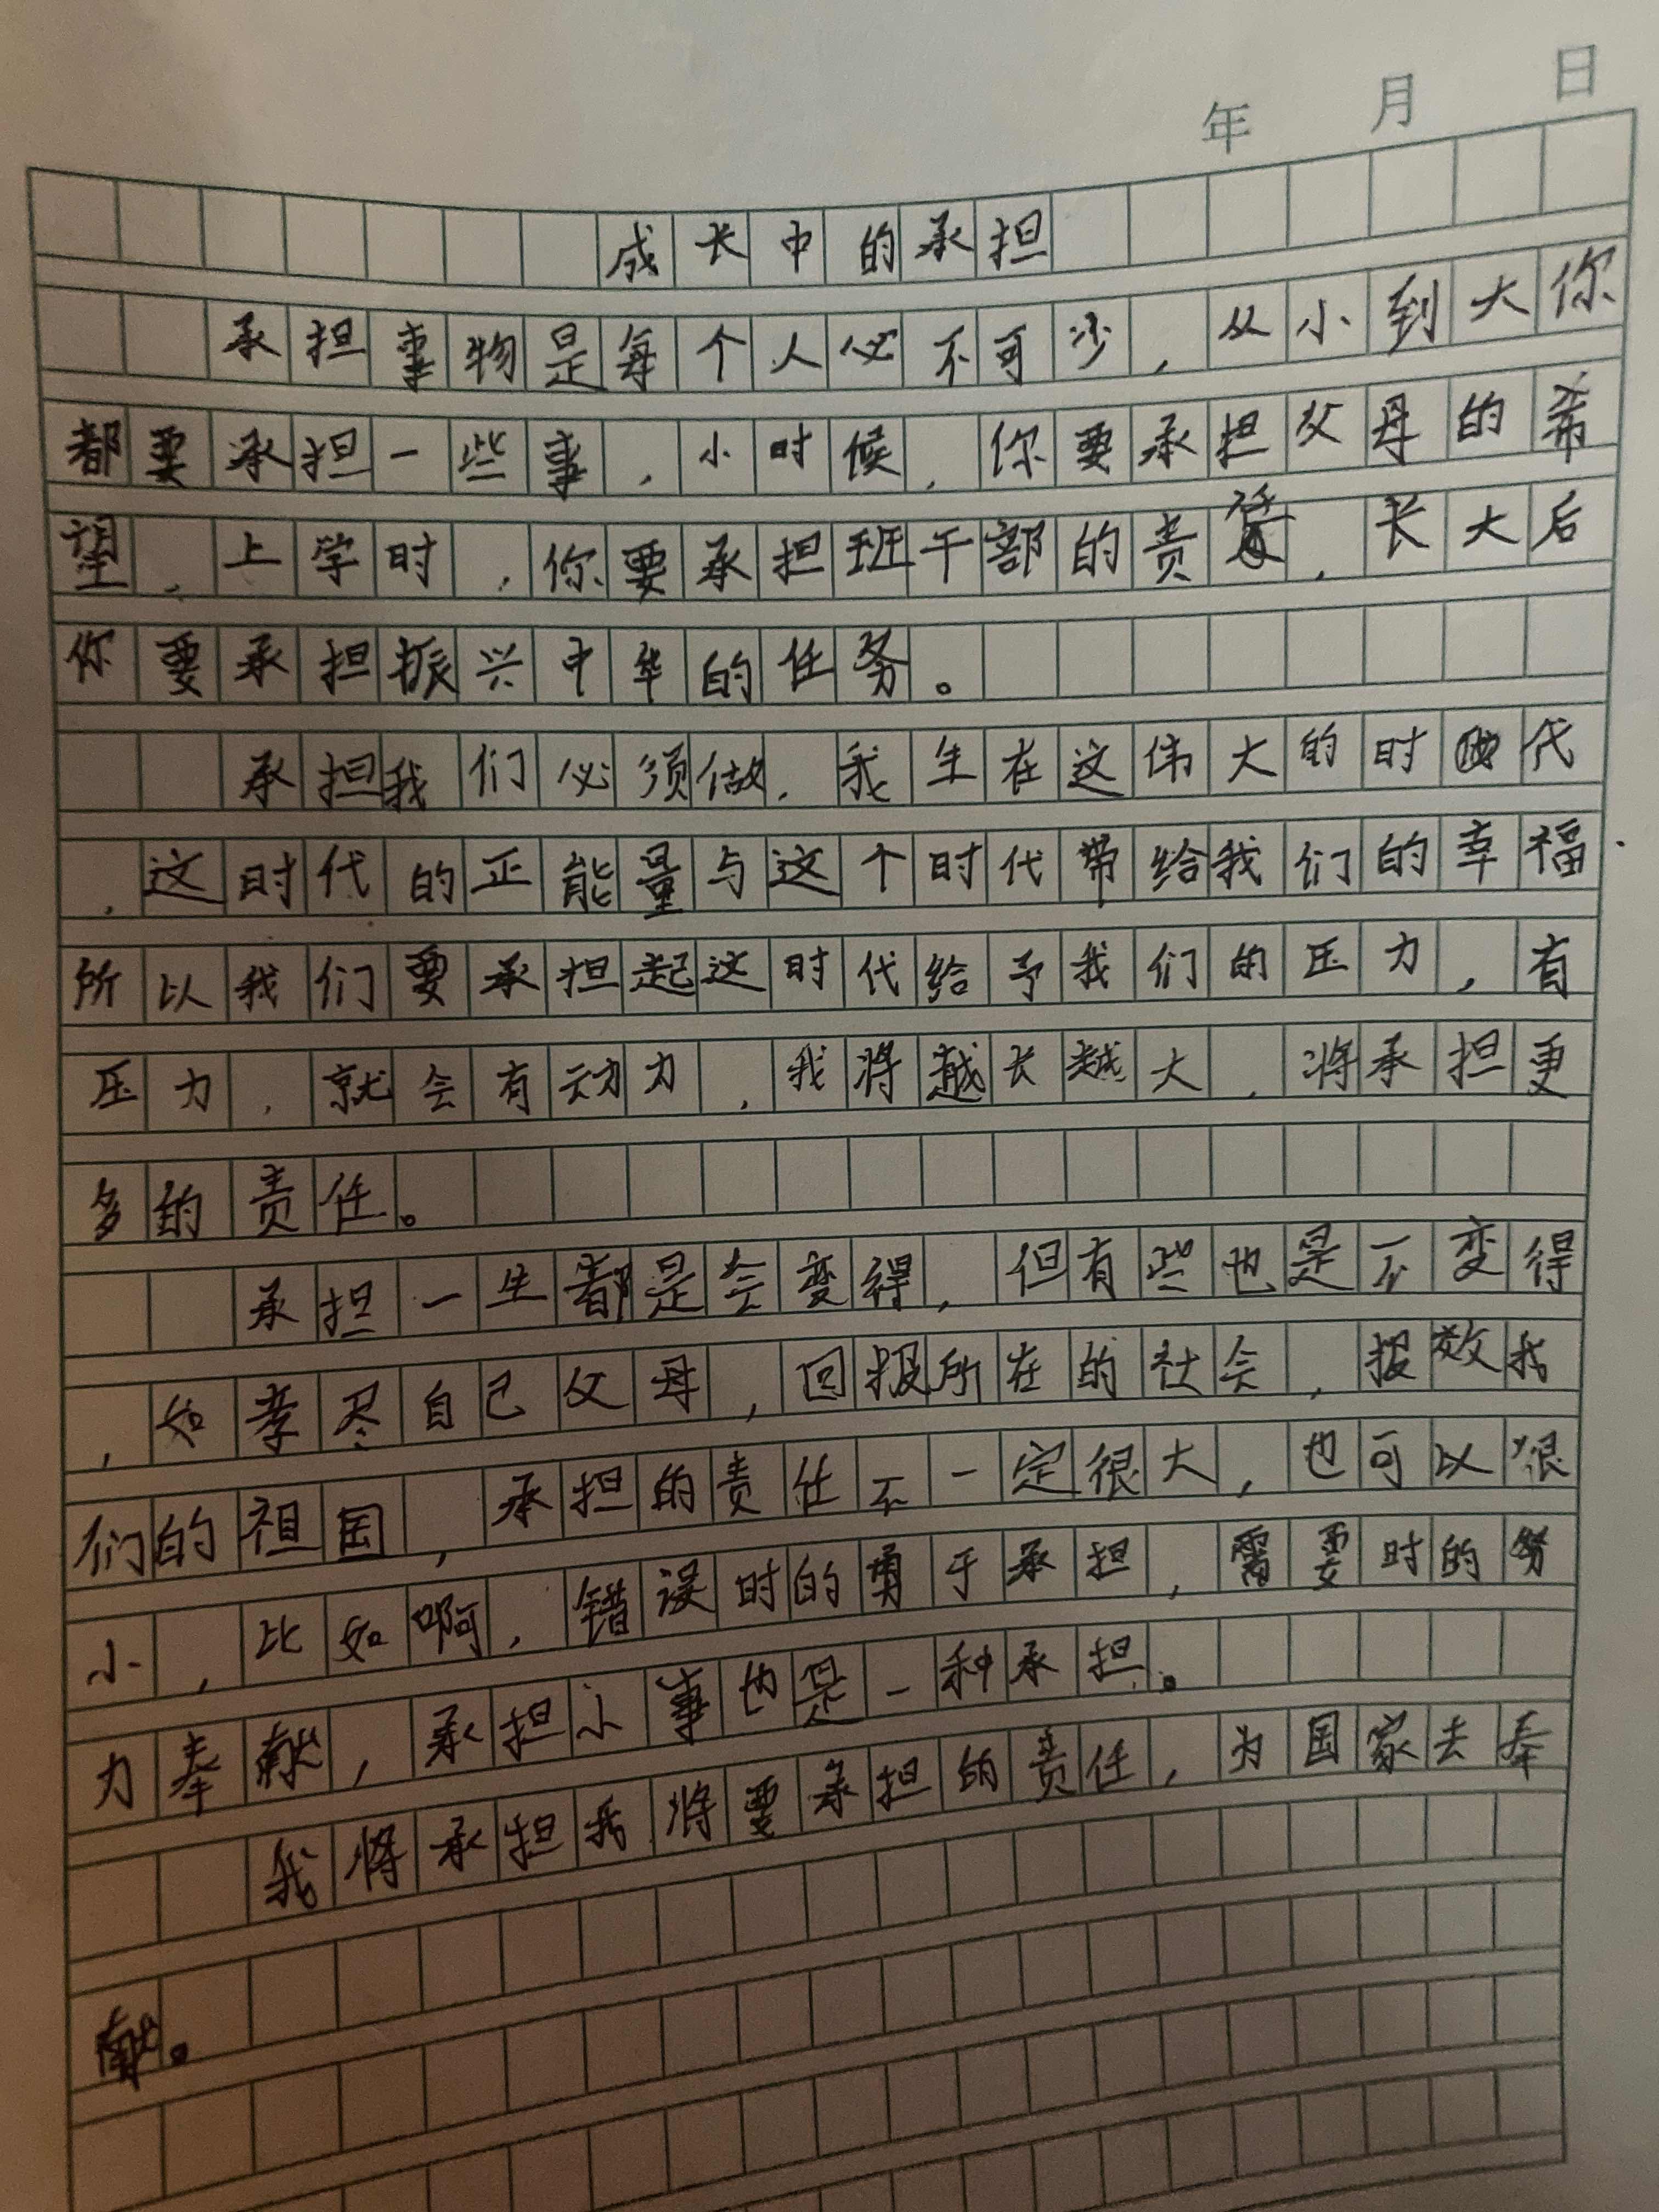 年 月 日
成长中的承担
承担事物是每个人必不可少，从小到大你
都要承担一些事，小时候，你要承担父母的希
望，上学时，你要承担班干部的责任，长大后
你要承担振兴中华的任务。
承担我们必须做，我生在这伟大的时代
，这时代的正能量与这个时代带给我们的幸福.
所以我们要承担起这时代给予我们的压力，有
压力，就会有动力，我将越长越大，将承担更
多的责任。
承担一生都是会变得，但有些也是不变得
，如孝尽自己父母，回报所在的社会，报效我
们的祖国，承担的责任不一定很大，也可以很
小，比如啊，错误时的勇于承担，需要时的努
力奉献，承担小事也是一种承担。
我将承担我将要承担的责任，为国家去奉
献。